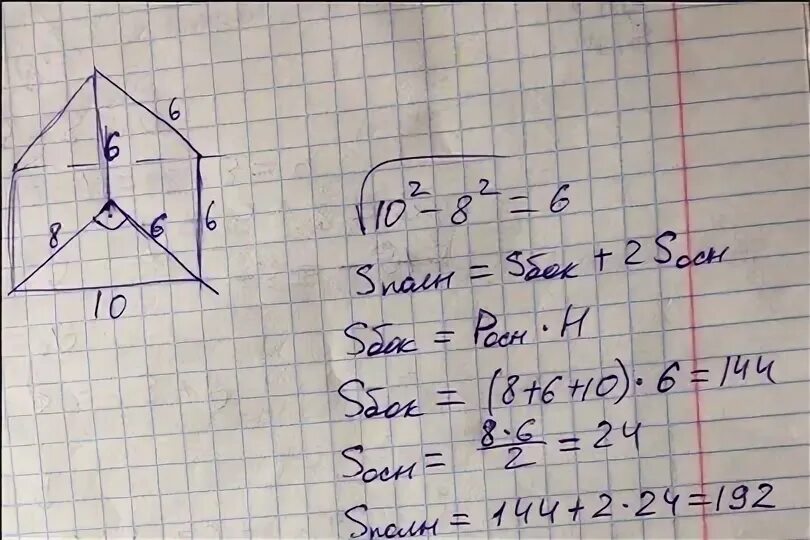 6
6
6
8
6
10
√10² - 8² = 6
Sполн = Sбок + 2Sосн
Sбок = Pосн · H
Sбок = (8+6+10) · 6 = 144
Sосн = 8·6/2 = 24
Sполн = 144 + 2·24 = 192